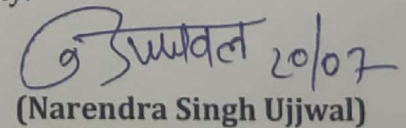 उज्जवल 20/07
(Narendra Singh Ujjwal)